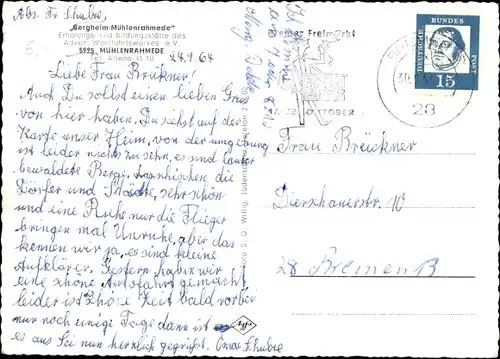 Abs. Fr. Schubre,
„Bergheim-Mühlenrahmede"
Erholungs- und Bildungsstätte des
Advent-Wohlfahrtswerkes e.V.
5975 MÜHLENRAHMEDE
Tel. Altena 41 10
24.9.64
Liebe Frau Brückner!
Auch Du sollst einen lieben Gruß
von hier haben. Du siehst auf der
Karte unser Heim, von der umgebung
ist leider nichts zu sehn, es sind lauter
bewaldete Berge, dazwischen die
Dörfer und Städte, sehr schön
und eine Ruhe nur die Flieger
bringen mal Unruhe, aber das
kennen wir ja, es sind kleine
Aufklärer. Gestern haben wir
eine schöne Autofahrt gemacht
leider ist schöne Zeit bald vorbei
nur noch einige Tage dann ist
es aus Sei nun herzlich gegrüßt. Oma Schubre
Ich komme
Foto S. G. Willig, Lüdenscheid
Bremer Freimarkt
OKTOBER
28
DEUTSCHE BUNDESPOST
15
Frau Brückner
Diershauerstr. 10
28 Bremen B